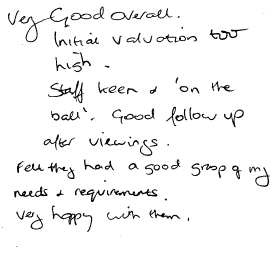 Very Good overall.
Initial valuation too
high.
Staff keen & 'on the
ball'. Good follow up
after viewings.
Felt they had a good grasp of my
needs & requirements.
Very happy with them.